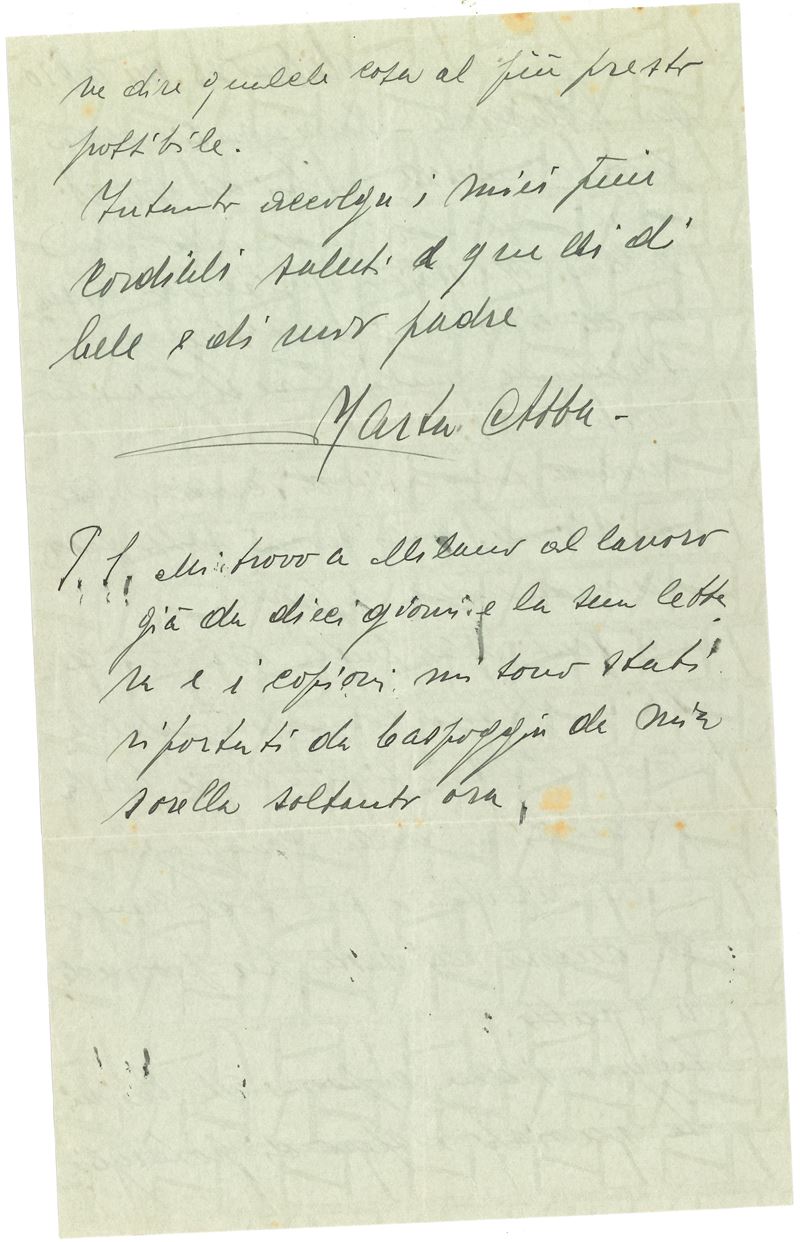 ne dire qualche cosa al più presto
possibile.
Intanto accolga i miei più
cordiali saluti e quelli di
Cele e di mio padre
Marta Abba -
P. S. Mi trovo a Milano al lavoro
già da dieci giorni e la sua lette
ra e i copioni mi sono stati
riportati da Caspoggio da mia
sorella soltanto ora.